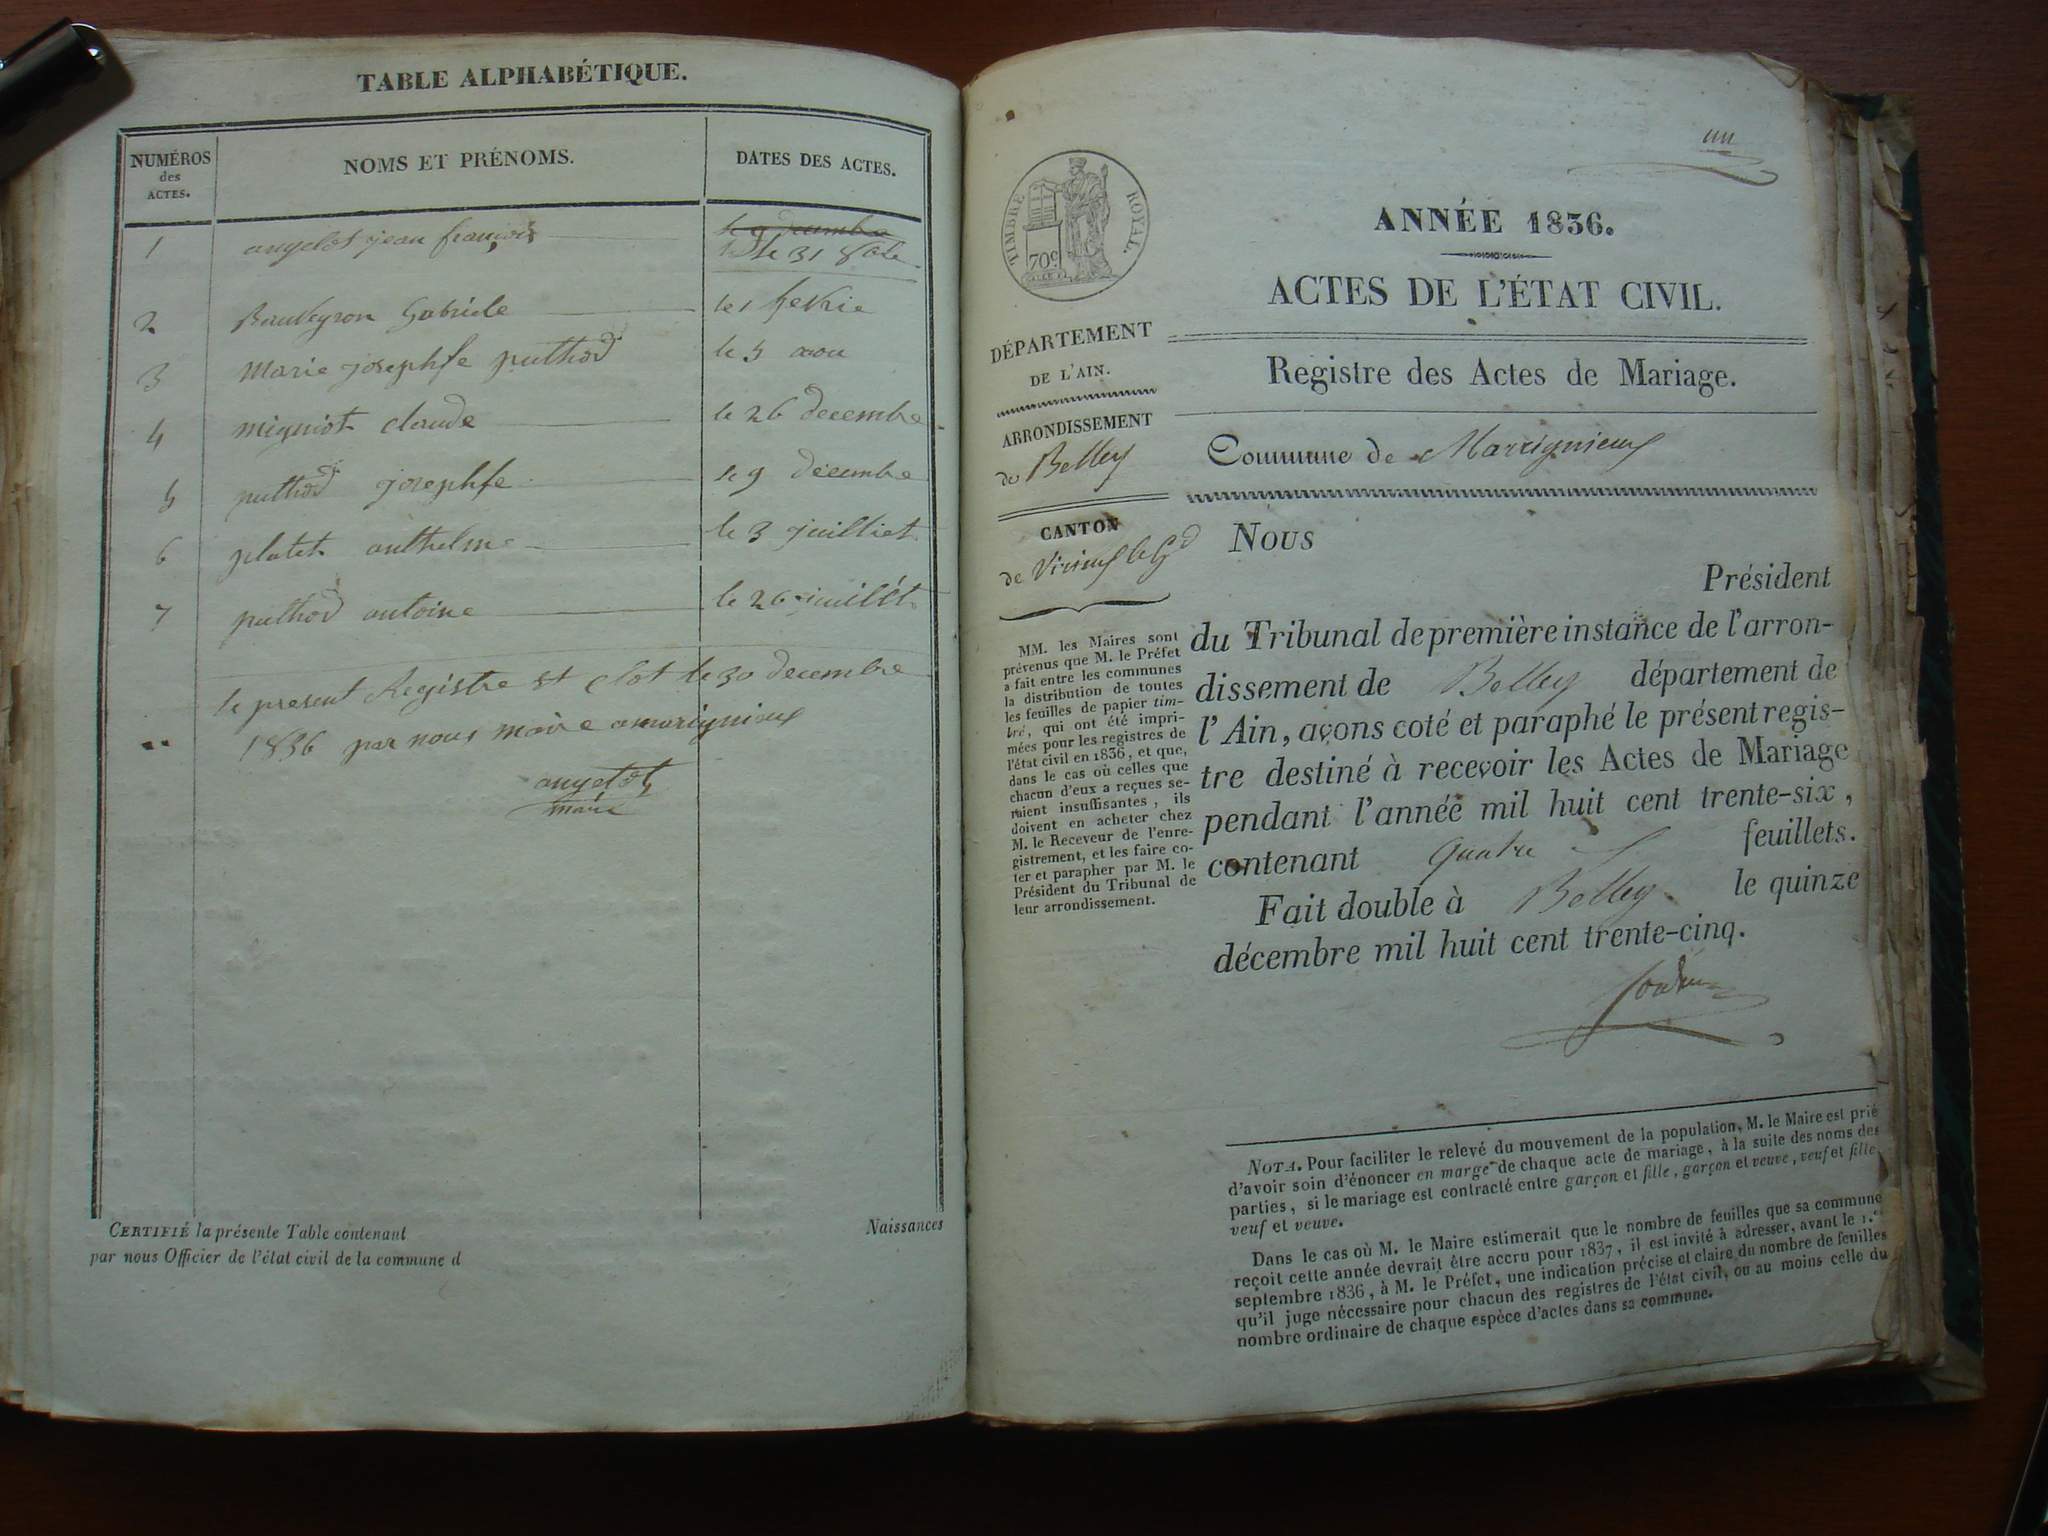 TABLE ALPHABÉTIQUE.
NUMÉROS
des
ACTES.
NOMS ET PRÉNOMS.
DATES DES ACTES.
1 angelot jean françois
le 9 decembre
le 31 8bre
2 Bauveyron Gabriele le 1 fevrie
3 Marie josephfe puthod le 5 aou
4 migniot claude le 26 decembre
5 puthod josephfe le 9 decembre
6 platet anthelme le 3 juilliet
7 puthod antoine le 26 juillét
le present Registre et clot le 30 decembre
1836 par nous maire amarignieux
angelot
maire
CERTIFIÉ la présente Table contenant Naissances
par nous Officier de l'état civil de la commune d
un
TIMBRE ROYAL.
70c
ANNÉE 1836.
ACTES DE L'ÉTAT CIVIL.
Registre des Actes de Mariage.
Commune de Marignieux
DÉPARTEMENT
DE L'AIN.
ARRONDISSEMENT
de Belley
CANTON
de Virieux le Gd
MM. les Maires sont
prévenus que M. le Préfet
a fait entre les communes
la distribution de toutes
les feuilles de papier tim-
bré, qui ont été impri-
mées pour les registres de
l'état civil en 1836, et que,
dans le cas où celles que
chacun d'eux a reçues se-
raient insuffisantes, ils
doivent en acheter chez
M. le Receveur de l'enre-
gistrement, et les faire co-
ter et parapher par M. le
Président du Tribunal de
leur arrondissement.
Nous
Président
du Tribunal de première instance de l'arron-
dissement de Belley département de
l'Ain, avons coté et paraphé le présent regis-
tre destiné à recevoir les Actes de Mariage
pendant l'année mil huit cent trente-six,
contenant quatre feuillets.
Fait double à Belley le quinze
décembre mil huit cent trente-cinq.
NOTA. Pour faciliter le relevé du mouvement de la population, M. le Maire est prié
d'avoir soin d'énoncer en marge de chaque acte de mariage, à la suite des noms des
parties, si le mariage est contracté entre garçon et fille, garçon et veuve, veuf et fille,
veuf et veuve.
Dans le cas où M. le Maire estimerait que le nombre de feuilles que sa commune
reçoit cette année devrait être accru pour 1837, il est invité à adresser, avant le 1.er
septembre 1836, à M. le Préfet, une indication précise et claire du nombre de feuilles
qu'il juge nécessaire pour chacun des registres de l'état civil, ou au moins celle du
nombre ordinaire de chaque espèce d'actes dans sa commune.